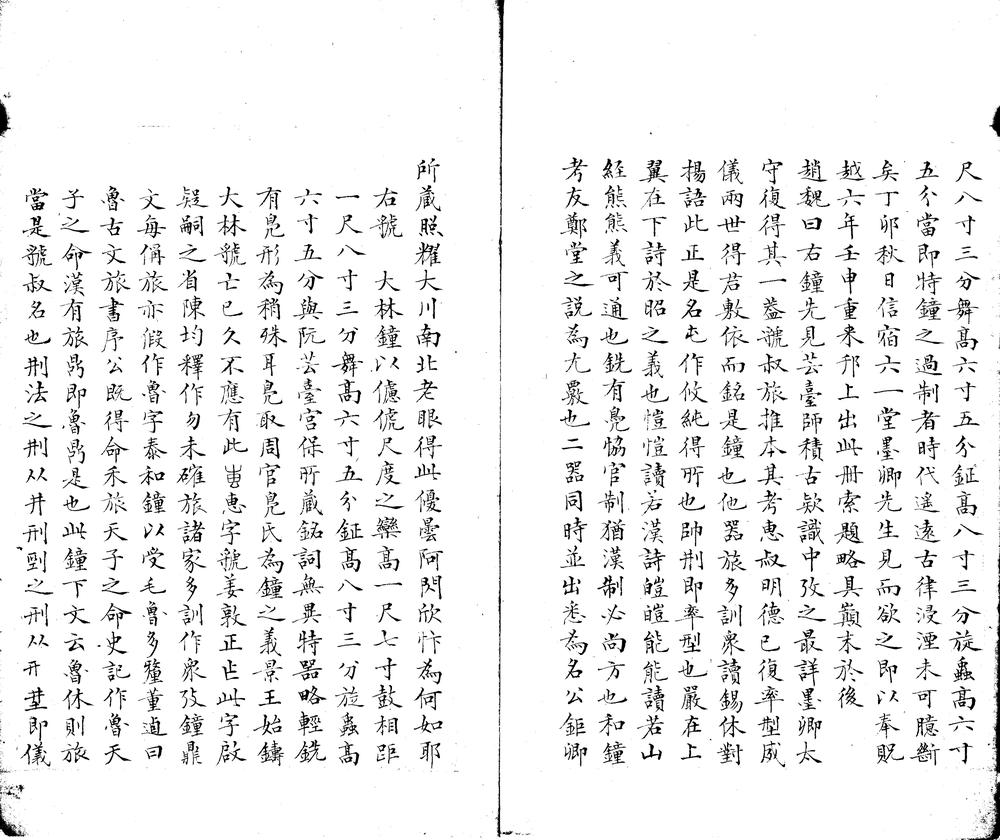 尺八寸三分舞高六寸五分鉦高八寸三分旋蟲高六寸
五分當即特鐘之過制者時代遙遠古律浸湮未可臆斷
矣丁卯秋日信宿六一堂墨卿先生見而欲之即以奉貺
越六年壬申重來邗上出此册索題略具巔末於後
趙魏曰右鐘先見芸臺師積古欵識中攷之最詳墨卿太
守復得其一葢虢叔旅推本其考惠叔明德已復率型威
儀兩世得君敷依而銘是鐘也他器旅多訓衆讀錫休對
揚語此正是名屯作攸純得所也帥刑即率型也嚴在上
翼在下詩於昭之義也愷愷讀若漢詩皚皚能能讀若山
經熊熊義可通也銑有鳧恊官制猶漢制必尚方也和鐘
考友鄭堂之説為尤覈也二器同時並出悉為名公鉅卿
所藏照耀大川南北老眼得此優曇阿閦欣忭為何如耶
右虢　大林鐘以慮俿尺度之欒高一尺七寸鼓相距
一尺八寸三分舞高六寸五分鉦高八寸三分旋蟲高
六寸五分與阮芸臺宮保所藏銘詞無異特器略輕銑
有鳧形為稍殊耳鳧取周官鳧氏為鐘之義景王始鑄
大林虢亡已久不應有此叀惠字虢姜敦正作此字啟
疑嗣之省陳均釋作勿未確旅諸家多訓作衆攷鐘鼎
文每偁旅亦假作魯字泰和鐘以受毛魯多釐董逌曰
魯古文旅書序公既得命禾旅天子之命史記作魯天
子之命漢有旅鼎即魯鼎是也此鐘下文云魯休則旅
當是虢叔名也刑法之刑从井刑剄之刑从幵型即儀